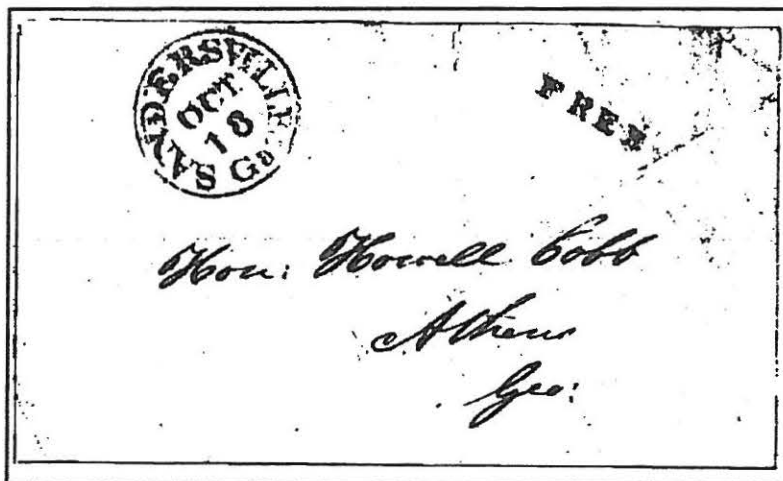 SANDERSVILLE Ga
OCT
18
FREE
Hon: Howell Cobb
Athens
Geo: